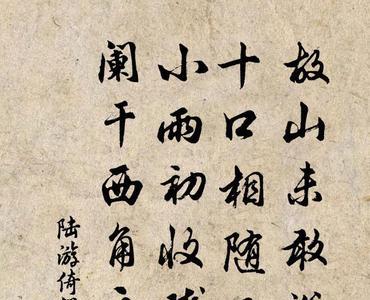 故山未敢
十口相随
小雨初收
阑干西角
陆游倚